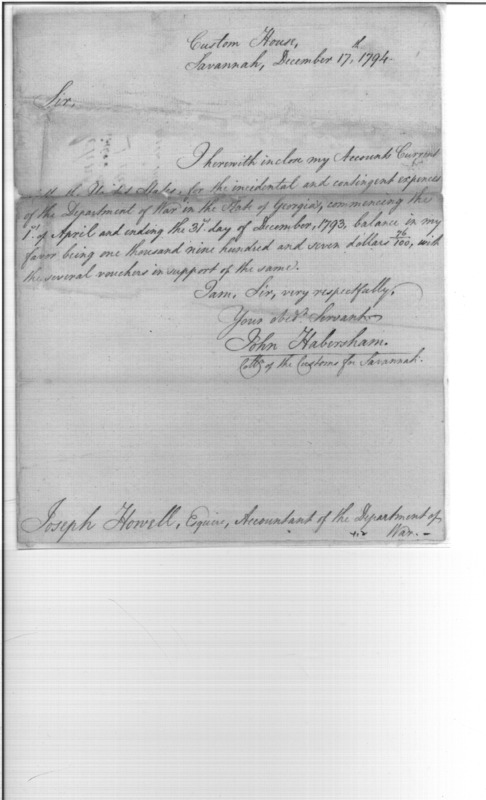 Custom House,
Savannah, December 17th, 1794.
Sir,
I herewith inclose my Account Current
the United States, for the incidental and contingent expences
of the Department of War in the State of Georgia, commencing the
1st of April and ending the 31st day of December, 1793, balance in my
favor being one thousand nine hundred and seven dollars 76/100, with
the several vouchers in support of the same.
I am, Sir, very respectfully,
Your obedt Servant
John Habersham.
Collr of the Customs for Savannah.
Joseph Howell, Esquire, Accountant of the Department of
War.